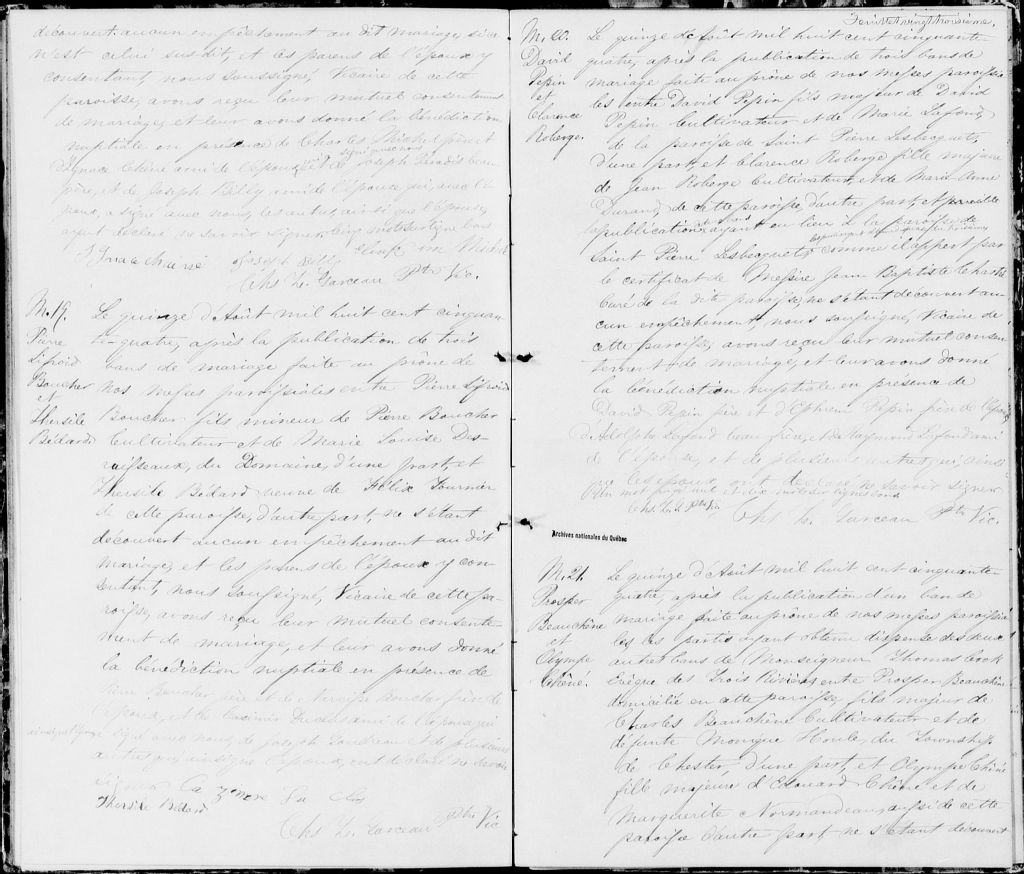 découvert aucun empêchement au dit mariage, si ce
n'est celui susdit, et les parens de l'époux y
consentant, nous soussigné, Vicaire de cette
paroisse, avons reçu leur mutuel consentement
de mariage, et leur avons donné la bénédiction
nuptiale en présence de Charles Michel père et
Ignace Chéné ami de l'époux, et de Joseph beau
père, et de Joseph Billy ami de l'épouse qui, avec l'é
poux, a signé avec nous, les autres, ainsi que l'épouse,
ayant déclaré ne savoir signer.
Joseph Billy
Chs Z. Garceau Ptre Vic.
M. 19.
Pierre
Sifroid
Boucher
et
Thersile
Bédard
Le quinze d'Août mil huit cent cinquan
te-quatre, après la publication de trois
bans de mariage faite au prône de
nos messes paroissiales entre Pierre Sifroid
Boucher fils mineur de Pierre Boucher
Cultivateur et de Marie Louise Des-
ruisseaux, du Domaine, d'une part, et
Thersile Bédard veuve de Félix Fournier
de cette paroisse, d'autre part, ne s'étant
découvert aucun empêchement au dit
mariage, et les parens de l'époux y con-
sentant, nous soussigné, Vicaire de cette pa-
roisse, avons reçu leur mutuel consente-
ment de mariage, et leur avons donné
la bénédiction nuptiale en présence de
Pierre Boucher père et de Narcisse Boucher frère de
l'époux, et de Casimir ami de l'épouse qui
a signé avec nous, de Joseph et de plusieurs
autres qui, ainsi que l'époux, ont déclaré ne savoir
signer
Thersile Bédard
Chs Z. Garceau Ptre Vic
Feuillet vingt troisième.
M. 20.
David
Pepin
et
Clarence
Roberge
Le quinze d'Août mil huit cent cinquante-
quatre, après la publication de trois bans de
mariage faite au prône de nos messes paroissia
les entre David Pepin fils majeur de David
Pepin Cultivateur et de Marie Lafond,
de la paroisse de Saint Pierre Lesbecquets,
d'une part, et Clarence Roberge fille majeure
de Jean Roberge Cultivateur, et de Marie-Anne
Durand, de cette paroisse, d'autre part, et pareille
publication ayant eu lieu à la paroisse de
Saint Pierre Lesbecquets, comme il appert par
le certificat de Messire Jean Baptiste
Curé de la dite paroisse, ne s'étant découvert au-
cun empêchement, nous soussigné, Vicaire de
cette paroisse, avons reçu leur mutuel consen-
tement de mariage, et leur avons donné
la bénédiction nuptiale en présence de
David Pepin père et d'Ephrem Pepin frère de l'époux,
d'Adolphe Lafond beau frère, et de Raymond Lafond ami
de l'épouse, et de plusieurs autres qui, ainsi
que les époux, ont déclaré ne savoir signer
Chs Z. G. Ptre Vic
Chs Z. Garceau Ptre Vic.
Archives nationales du Québec
M. 21.
Prosper
Beauchêne
et
Olympe
Chêné.
Le quinze d'Août mil huit cent cinquante-
quatre, après la publication d'un ban de
mariage faite au prône de nos messes paroissia
les les partis ayant obtenu dispense des deux
autres bans de Monseigneur Thomas Cook
Evêque des Trois Rivières entre Prosper Beauchêne
domicilié en cette paroisse, fils majeur de
Charles Beauchêne Cultivateur et de
défunte Monique Houle, du Township
de Chester, d'une part, et Olympe Chêné
fille majeure d'Edouard Chêné et de
Marguerite Normandeau, aussi de cette
paroisse d'autre part, ne s'étant découvert